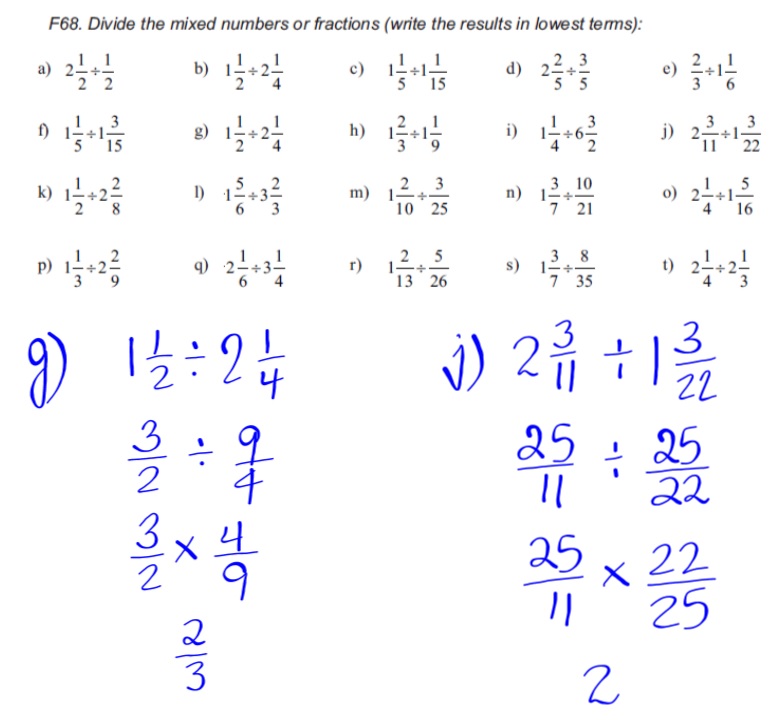 F68. Divide the mixed numbers or fractions (write the results in lowest terms):
a) 2 1/2 ÷ 1/2 b) 1 1/2 ÷ 2 1/4 c) 1 1/5 ÷ 1 1/15 d) 2 2/5 ÷ 3/5 e) 2/3 ÷ 1 1/6
f) 1 1/5 ÷ 1 3/15 g) 1 1/2 ÷ 2 1/4 h) 1 2/3 ÷ 1 1/9 i) 1 1/4 ÷ 6 3/2 j) 2 3/11 ÷ 1 3/22
k) 1 1/2 ÷ 2 2/8 l) 1 5/6 ÷ 3 2/3 m) 1 2/10 ÷ 3/25 n) 1 3/7 ÷ 10/21 o) 2 1/4 ÷ 1 5/16
p) 1 1/3 ÷ 2 2/9 q) 2 1/6 ÷ 3 1/4 r) 1 2/13 ÷ 5/26 s) 1 3/7 ÷ 8/35 t) 2 1/4 ÷ 2 1/3
g) 1 1/2 ÷ 2 1/4
3/2 ÷ 9/4
3/2 × 4/9
2/3
j) 2 3/11 ÷ 1 3/22
25/11 ÷ 25/22
25/11 × 22/25
2